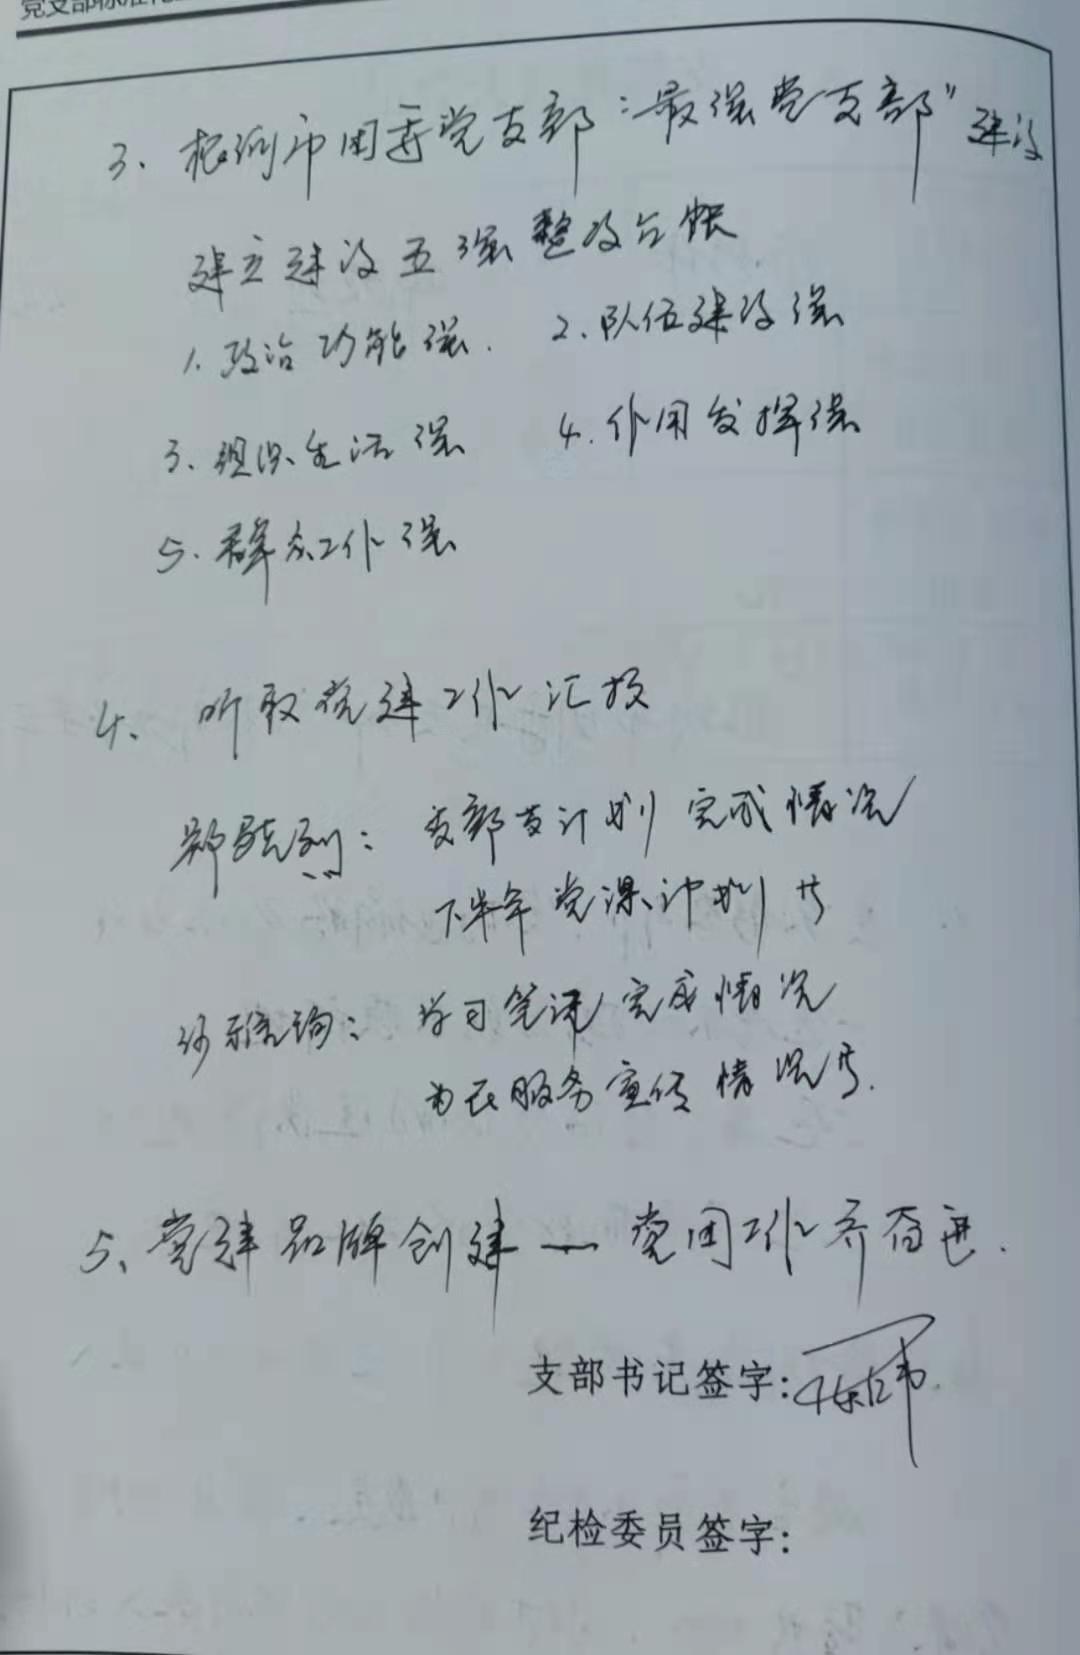 党支部标准化
3、根例市团委党支部"最强党支部"建设
建立建设五强整改台账
1.政治功能强. 2.队伍建设强
3、组织生活强 4.作用发挥强
5.群众工作强
4、听取党建工作汇报
郑: 支部计划完成情况
下半年党课计划等
: 学习笔记完成情况
为民服务宣传情况等.
5、党建品牌创建——党团工作齐奋进.
支部书记签字:
纪检委员签字: